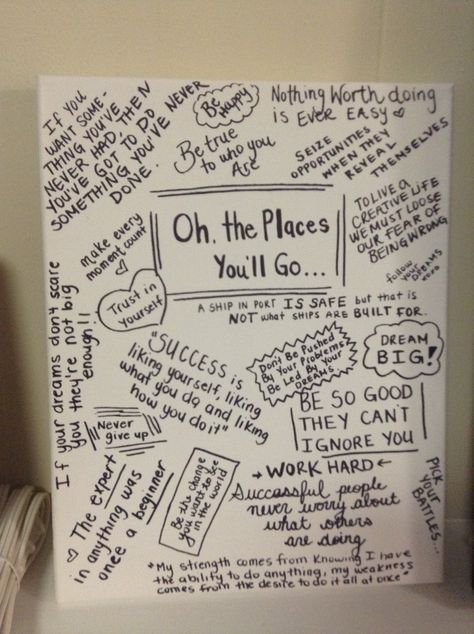 If you
WANT SOME-
THING YOU'VE
NEVER HAD, THEN
YOU'VE GOT TO DO
SOMETHING YOU'VE NEVER
DONE.
Be
Happy
Nothing Worth doing
is EVER EASY
Be true
to who you
Are
SEIZE
OPPORTUNITIES
WHEN THEY
REVEAL
THEMSELVES
make every
moment count
Oh, the Places
You'll Go...
TO LIVE A
CREATIVE LIFE
WE MUST LOOSE
OUR FEAR OF
BEING WRONG
follow
YOUR DREAMS
xoxo
Trust in
yourself
A SHIP IN PORT IS SAFE but that is
NOT what SHIPS ARE BUILT FOR.
If your dreams don't scare
you they're not big
enough!!
"SUCCESS is
liking yourself, liking
what you do, and liking
how you do it"
Don't Be Pushed
By Your Problems
Be Led By Your
DREAMS
DREAM
BIG!
BE SO GOOD
THEY CAN'T
IGNORE YOU
Never
give up
The expert
in anything was
once a beginner
Be the change
you want to see
in the world
WORK HARD
Successful people
never worry about
what others
are doing
PICK
YOUR
BATTLES...
"My strength comes from knowing I have
the ability to do anything, my weakness
comes from the desire to do it all at once"